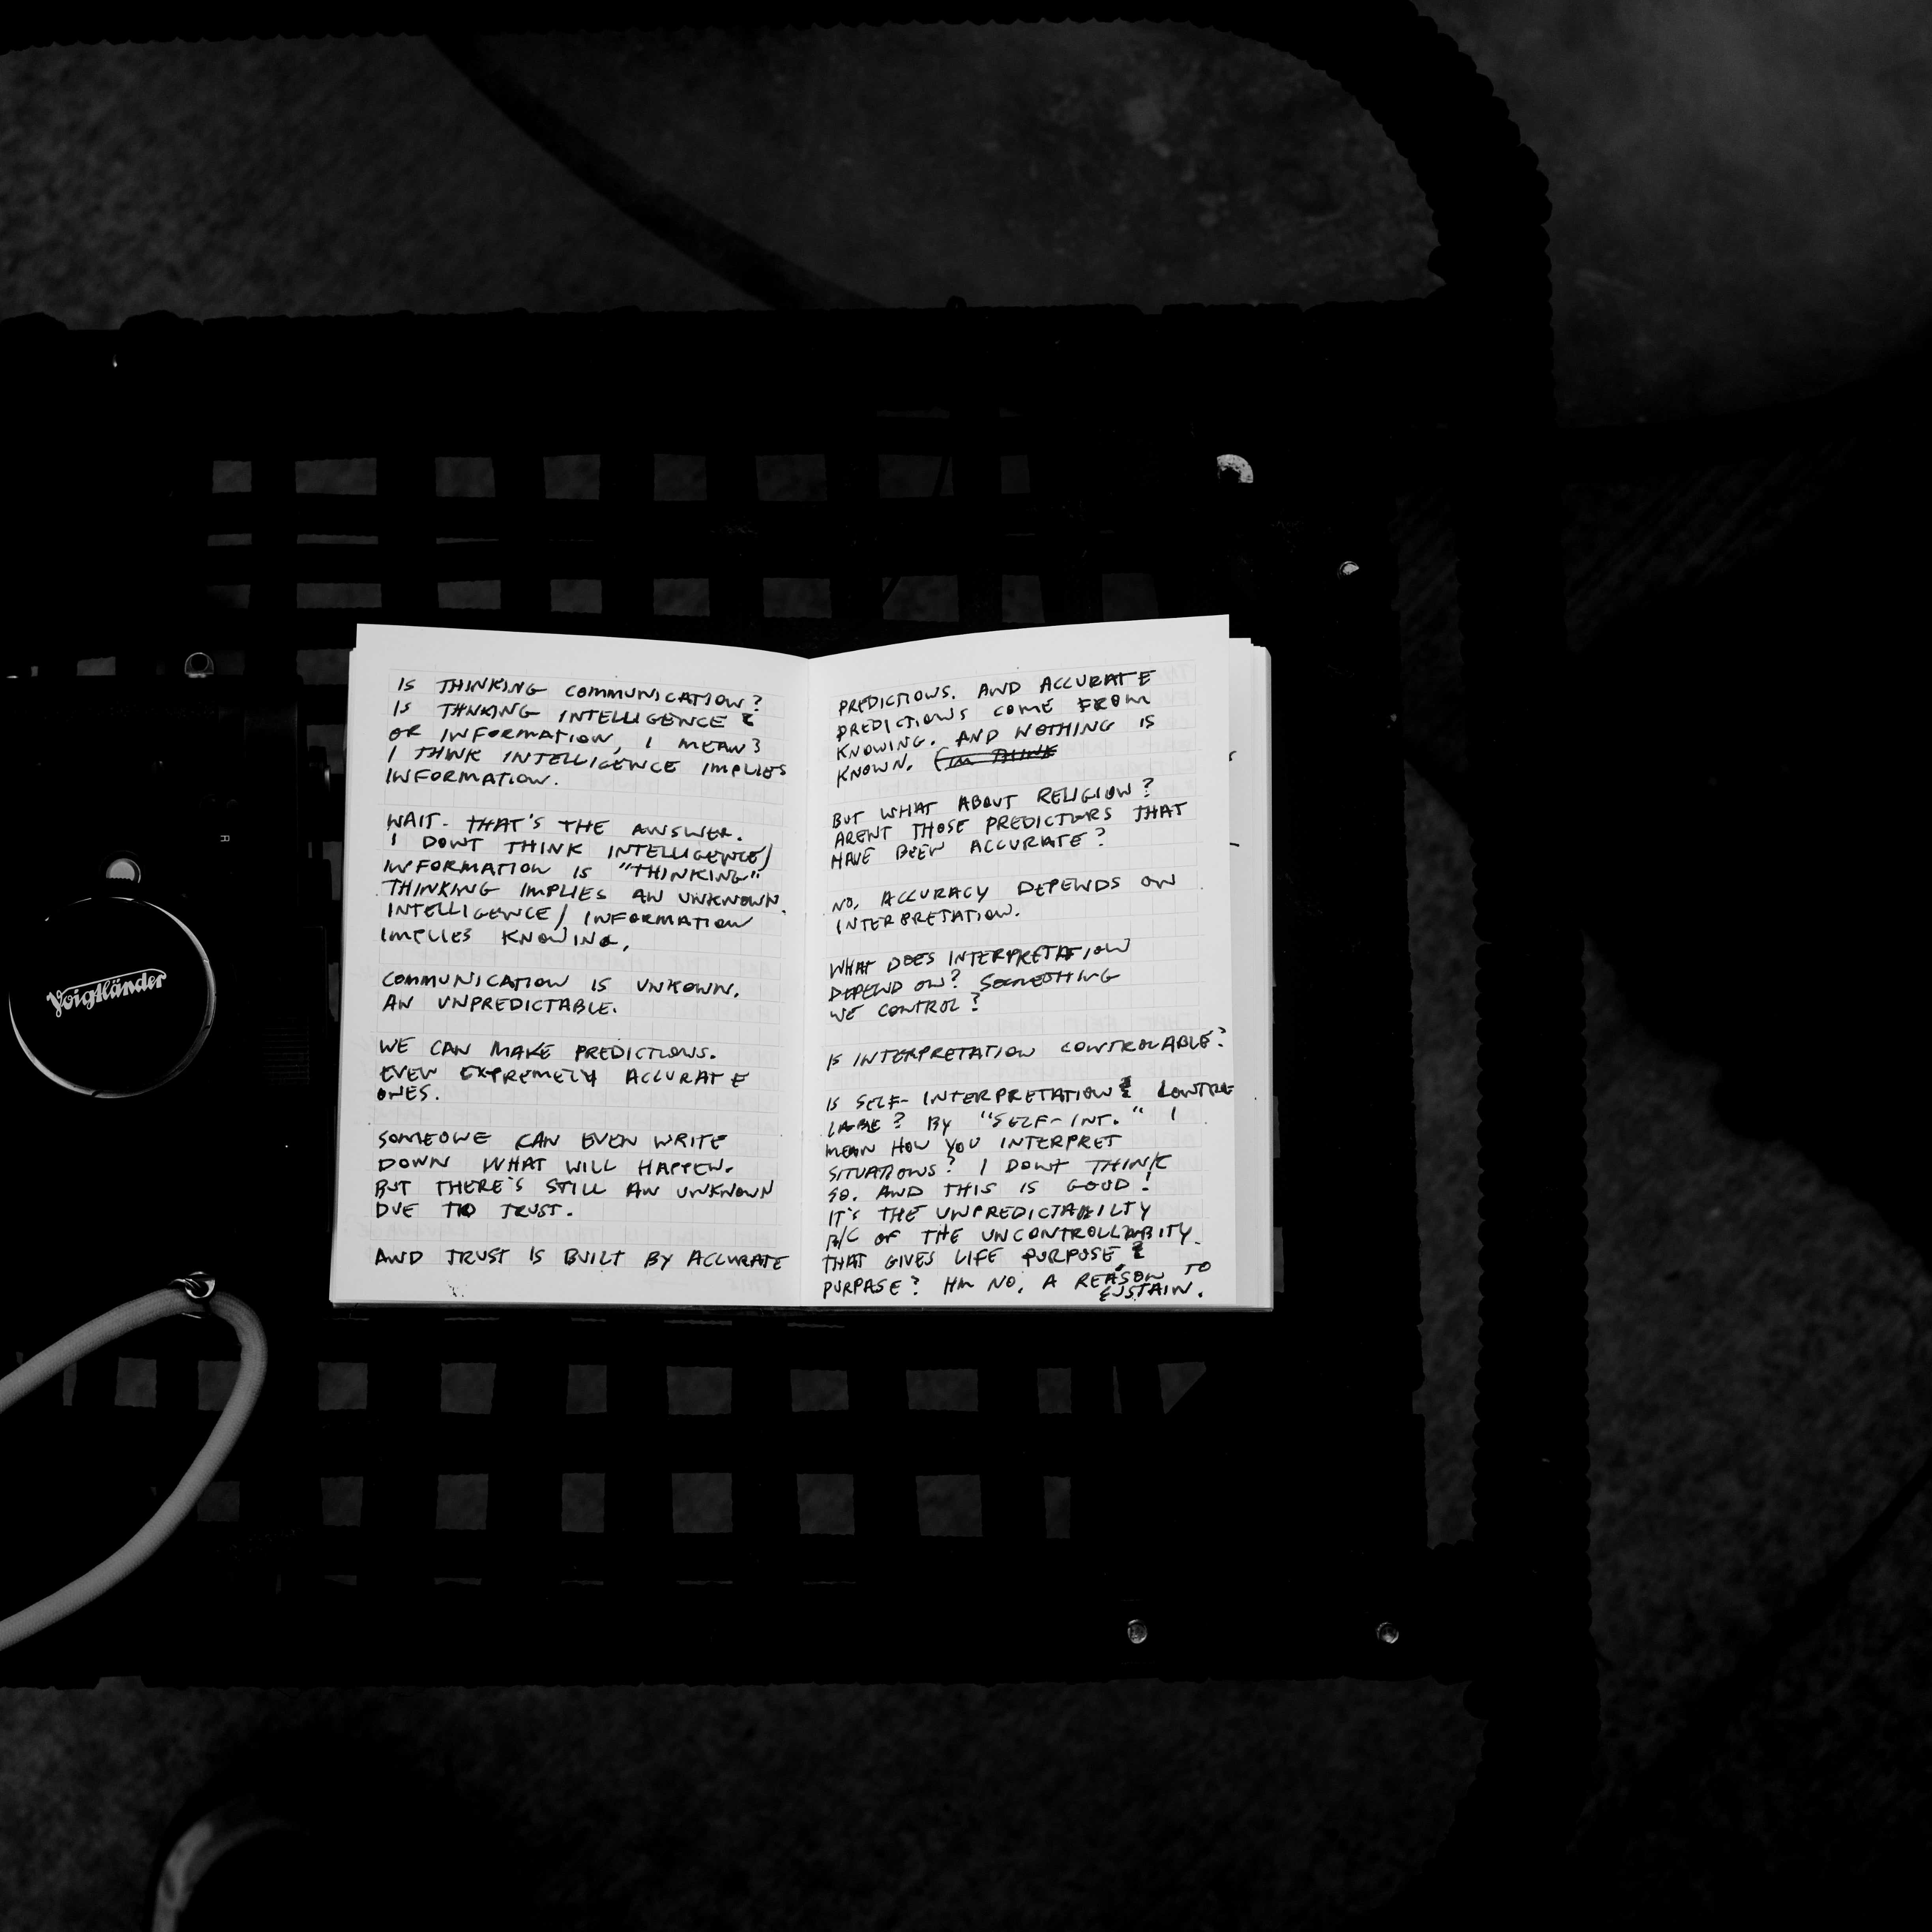 IS THINKING COMMUNICATION?
IS THNKING INTELLIGENCE?
OR INFORMATION, I MEAN?
I THINK INTELLIGENCE IMPLIES
INFORMATION.
WAIT. THAT'S THE ANSWER.
I DONT THINK INTELLIGENCE/
INFORMATION IS "THINKING".
THINKING IMPLIES AN UNKNOWN.
INTELLIGENCE/INFORMATION
IMPLIES KNOWING.
COMMUNICATION IS UNKOWN.
AN UNPREDICTABLE.
WE CAN MAKE PREDICTIONS.
EVEN EXTREMELY ACCURATE
ONES.
SOMEONE CAN EVEN WRITE
DOWN WHAT WILL HAPPEN.
BUT THERE'S STILL AN UNKNOWN
DUE TO TRUST.
AND TRUST IS BUILT BY ACCURATE
PREDICTIONS. AND ACCURATE
PREDICTIONS COME FROM
KNOWING. AND NOTHING IS
KNOWN.
BUT WHAT ABOUT RELIGION?
ARENT THOSE PREDICTORS THAT
HAVE BEEN ACCURATE?
NO, ACCURACY DEPENDS ON
INTERPRETATION.
WHAT DOES INTERPRETATION
DEPEND ON? SOMETHING
WE CONTROL?
IS INTERPRETATION CONTROLABLE?
IS SELF-INTERPRETATION CONTROL
LABLE? BY "SELF-INT." I
MEAN HOW YOU INTERPRET
SITUATIONS? I DONT THINK
SO. AND THIS IS GOOD!
IT'S THE UNPREDICTABILTY
B/C OF THE UNCONTROLLABITY
THAT GIVES LIFE PURPOSE.
PURPASE? HM NO, A REASON TO
SUSTAIN.
Voigtländer